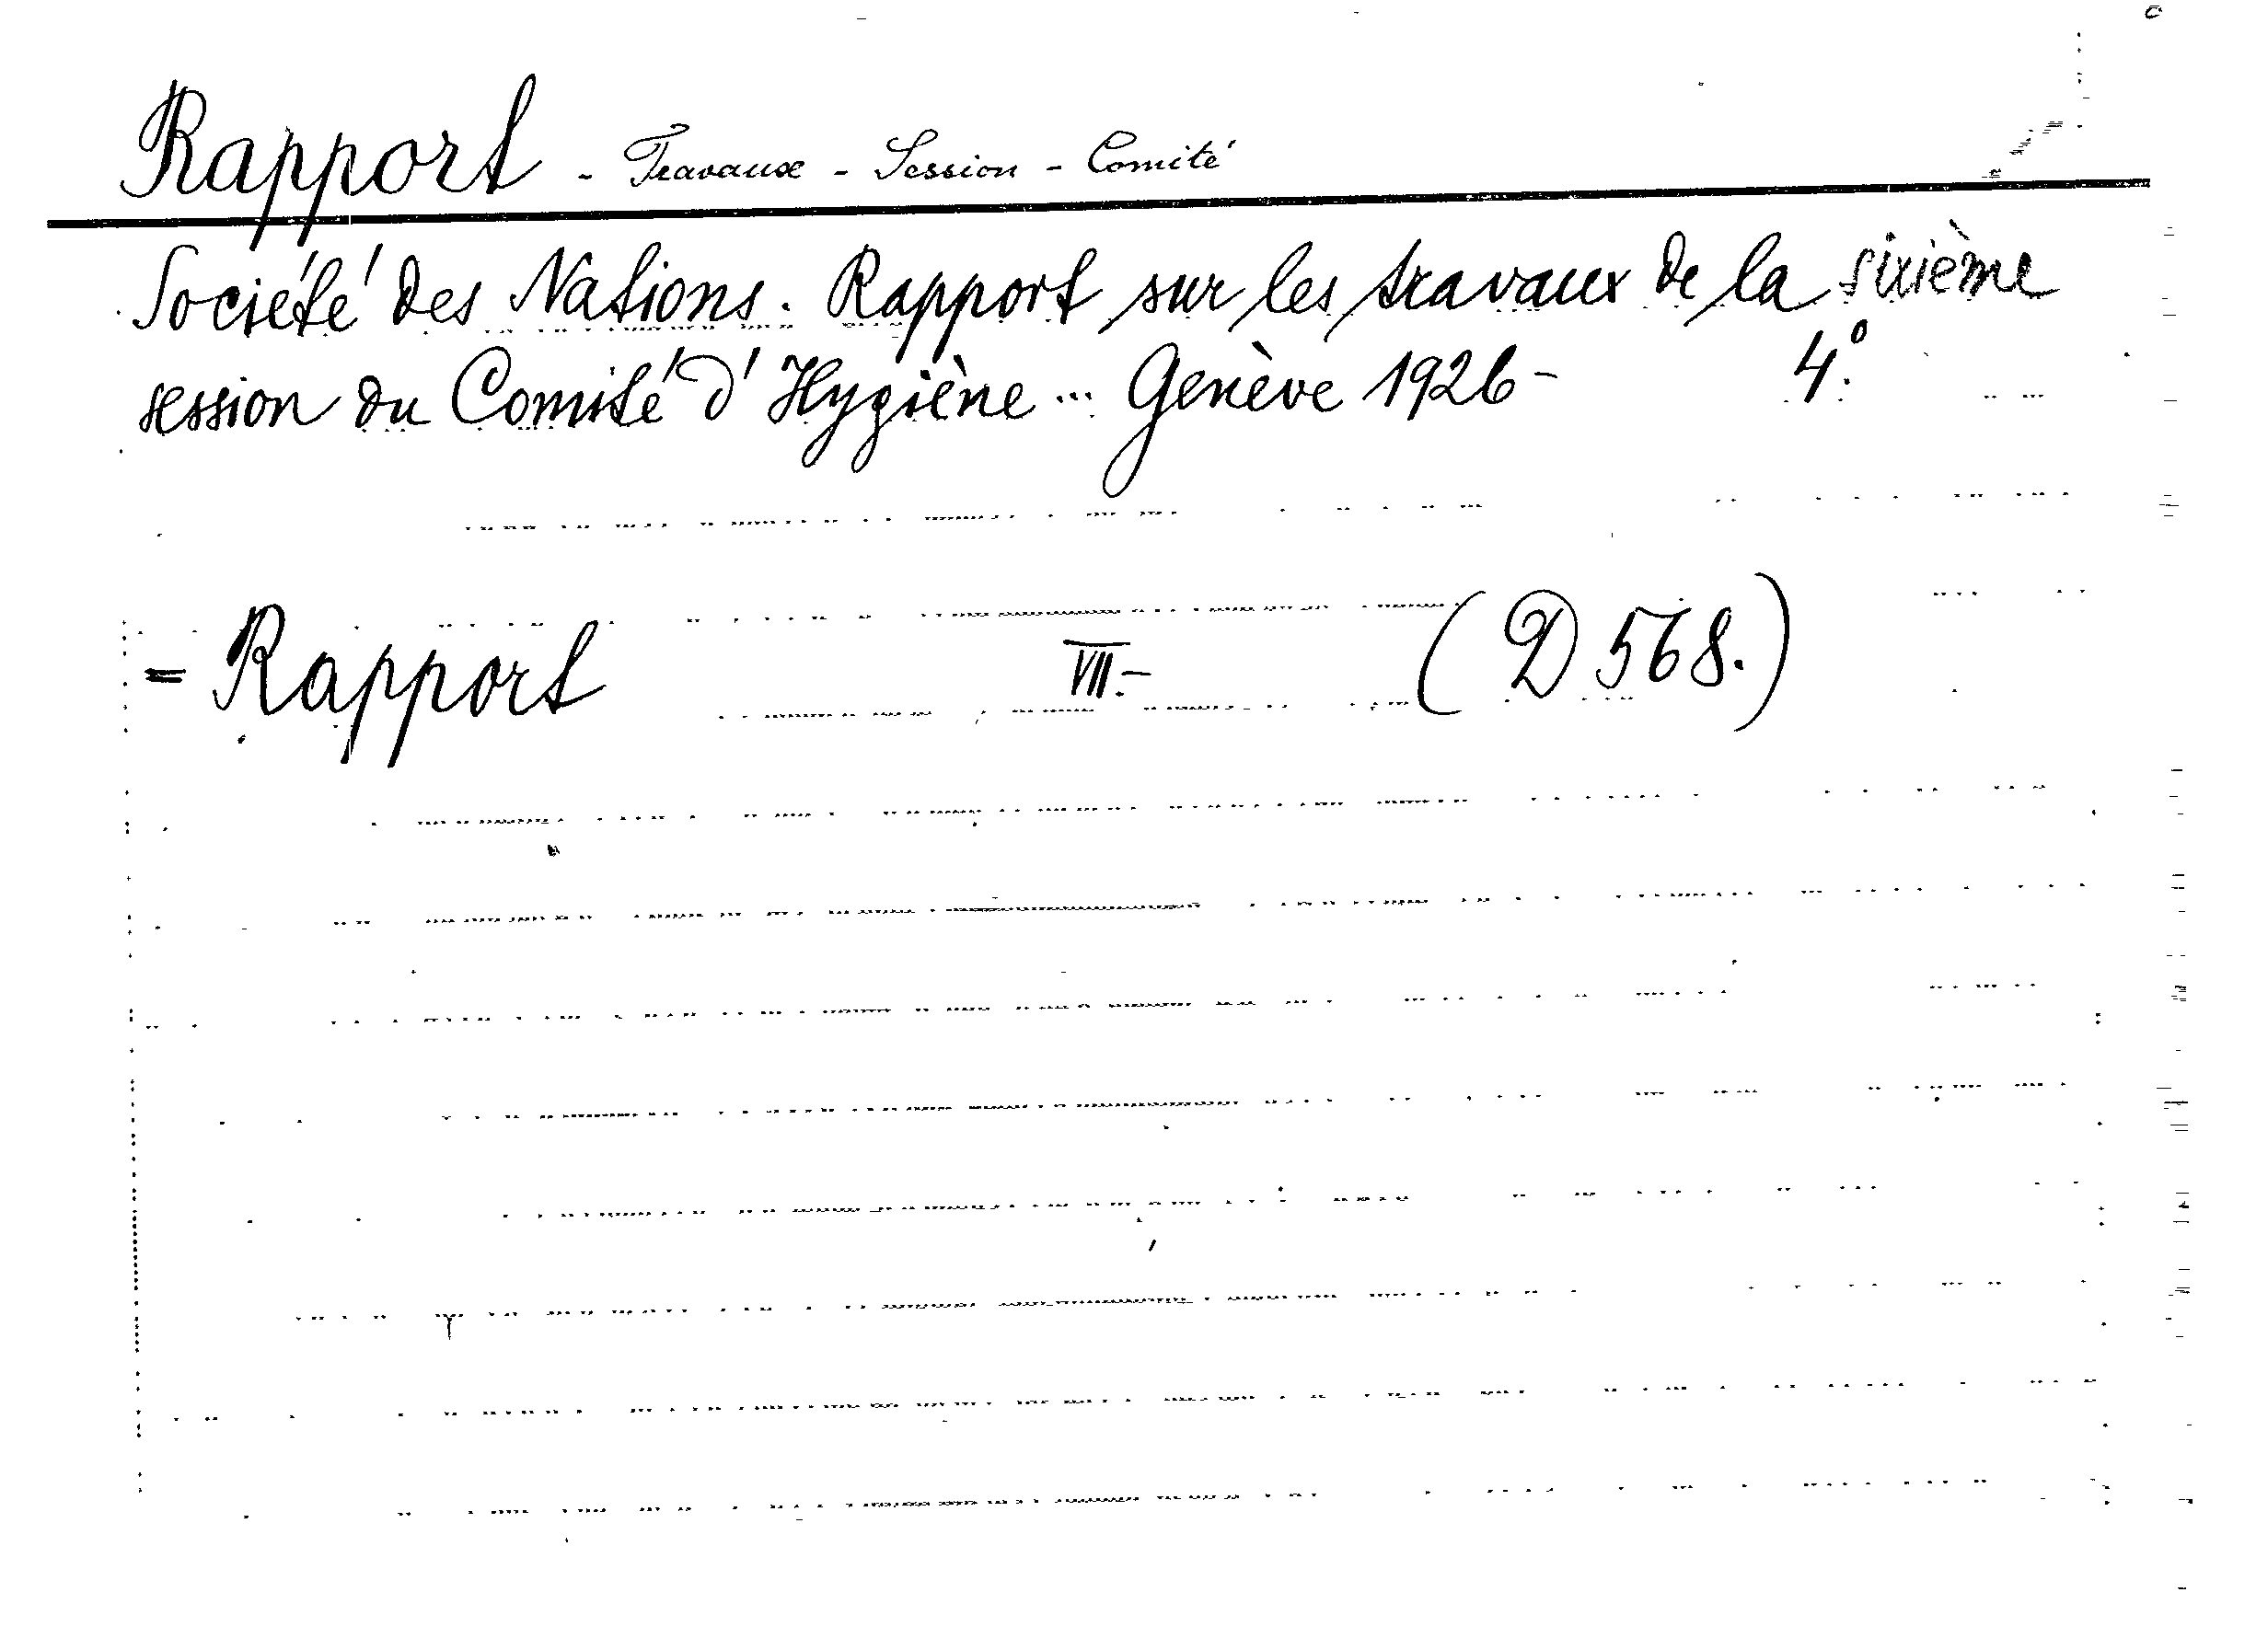 Rapport - Travaux - Session - Comité
Société des Nations. Rapport sur les travaux de la sixième
session du Comité d'Hygiène ... Genève 1926 - 4°.
= Rapport VII.- (D 568.)